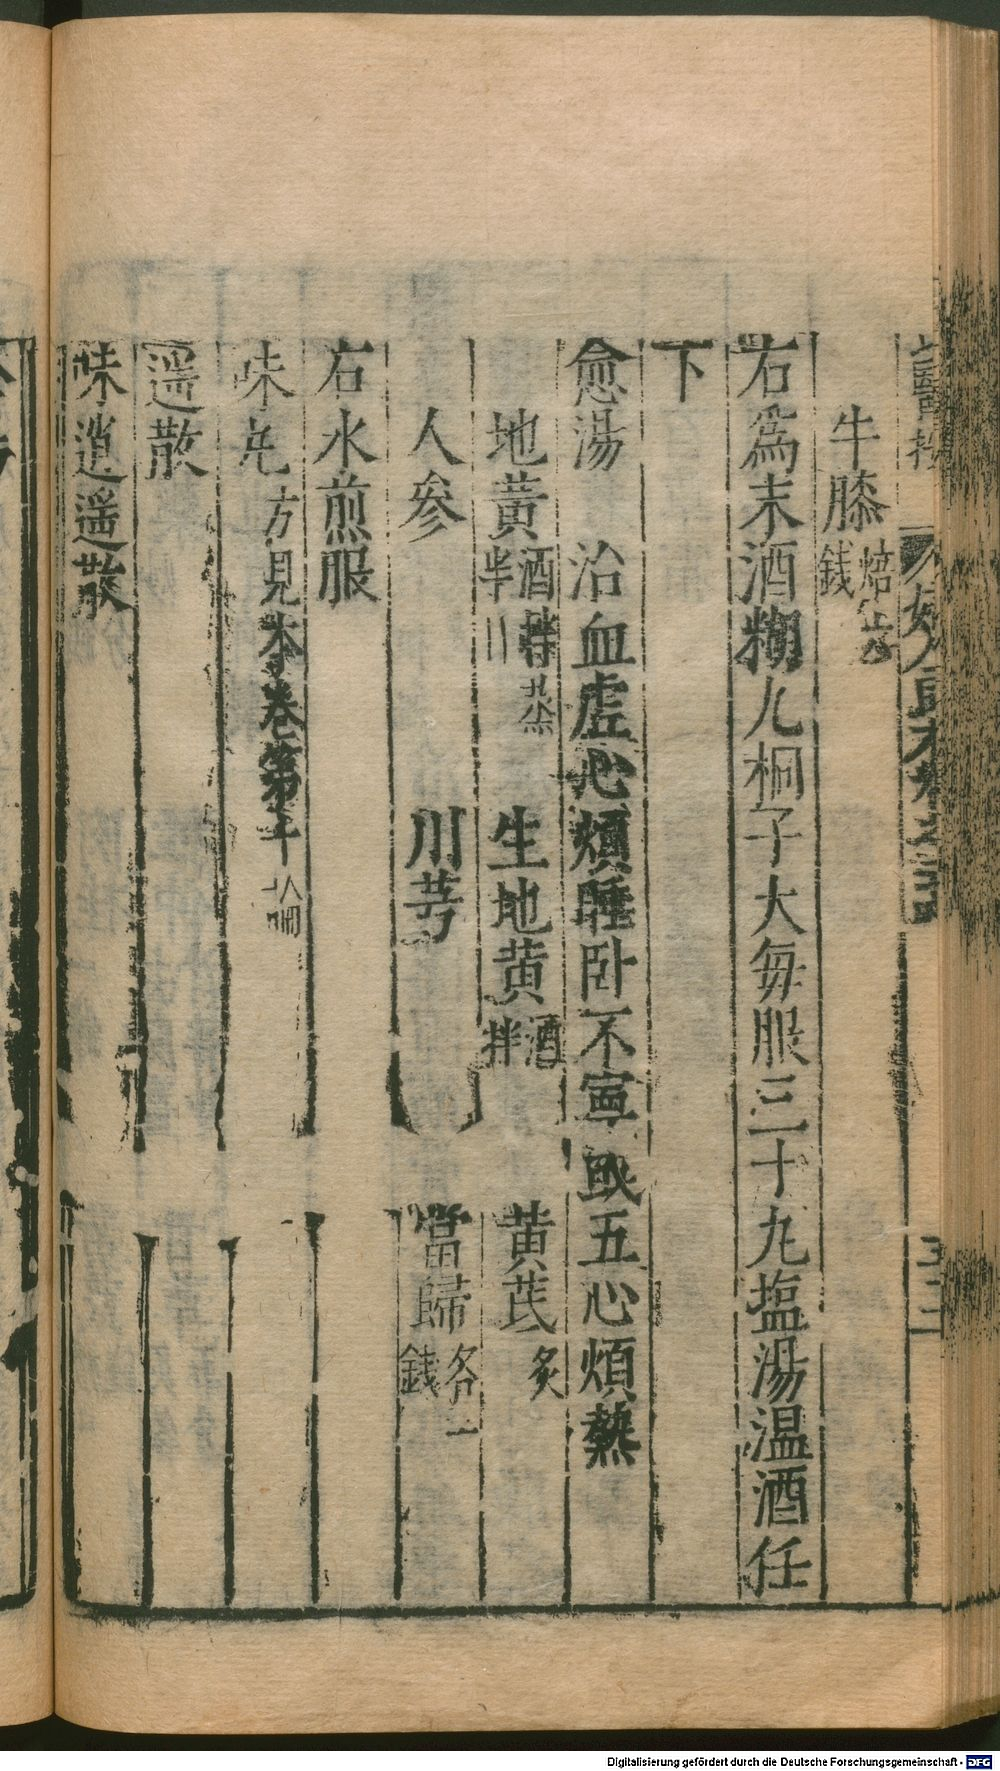 牛膝焙各錢
右爲末酒糊凡桐子大每服三十九塩湯温酒任
下
愈湯 治血虚心煩睡卧不寧或五心煩熱
地黄酒拌蒸半 生地黄酒拌 黄芪炙
人參 川芎 當歸各一錢
右水煎服
味丸方見本卷第十八
遥散
味逍遥散
五十二
Digitalisierung gefördert durch die Deutsche Forschungsgemeinschaft - DFG